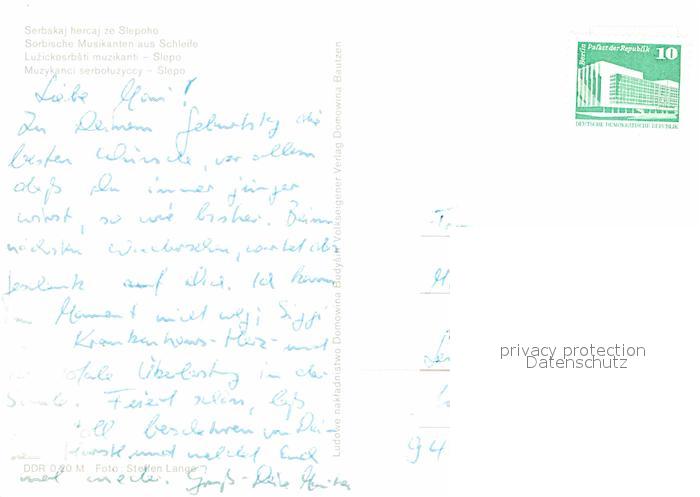 Serbskaj hercaj ze Slepoho
Sorbische Musikanten aus Schleife
Lužickosrbšti muzikanti – Slepo
Muzykanci serbołużyccy – Slepo
Berlin Palast der Republik 10
DEUTSCHE DEMOKRATISCHE REPUBLIK
Liebe
Zu Deinem Geburtstag die
besten Wünsche, vor allem
daß Du immer jünger
wirst, so wie bisher. Beim
nächsten wartet das
Geschenk auf Dich. Ich kann
im Moment nicht weg,
Krankenhaus - Herz - und
totale Überlastung in der
Schule. Feiert schön, laß
und meldet Euch
mal wieder. Gruß - Deine
Ludowe nakładnistwo Domowina Budyšin Volkseigener Verlag Domowina Bautzen
94
privacy protection
Datenschutz
DDR 0,20 M Foto: Steffen Lange